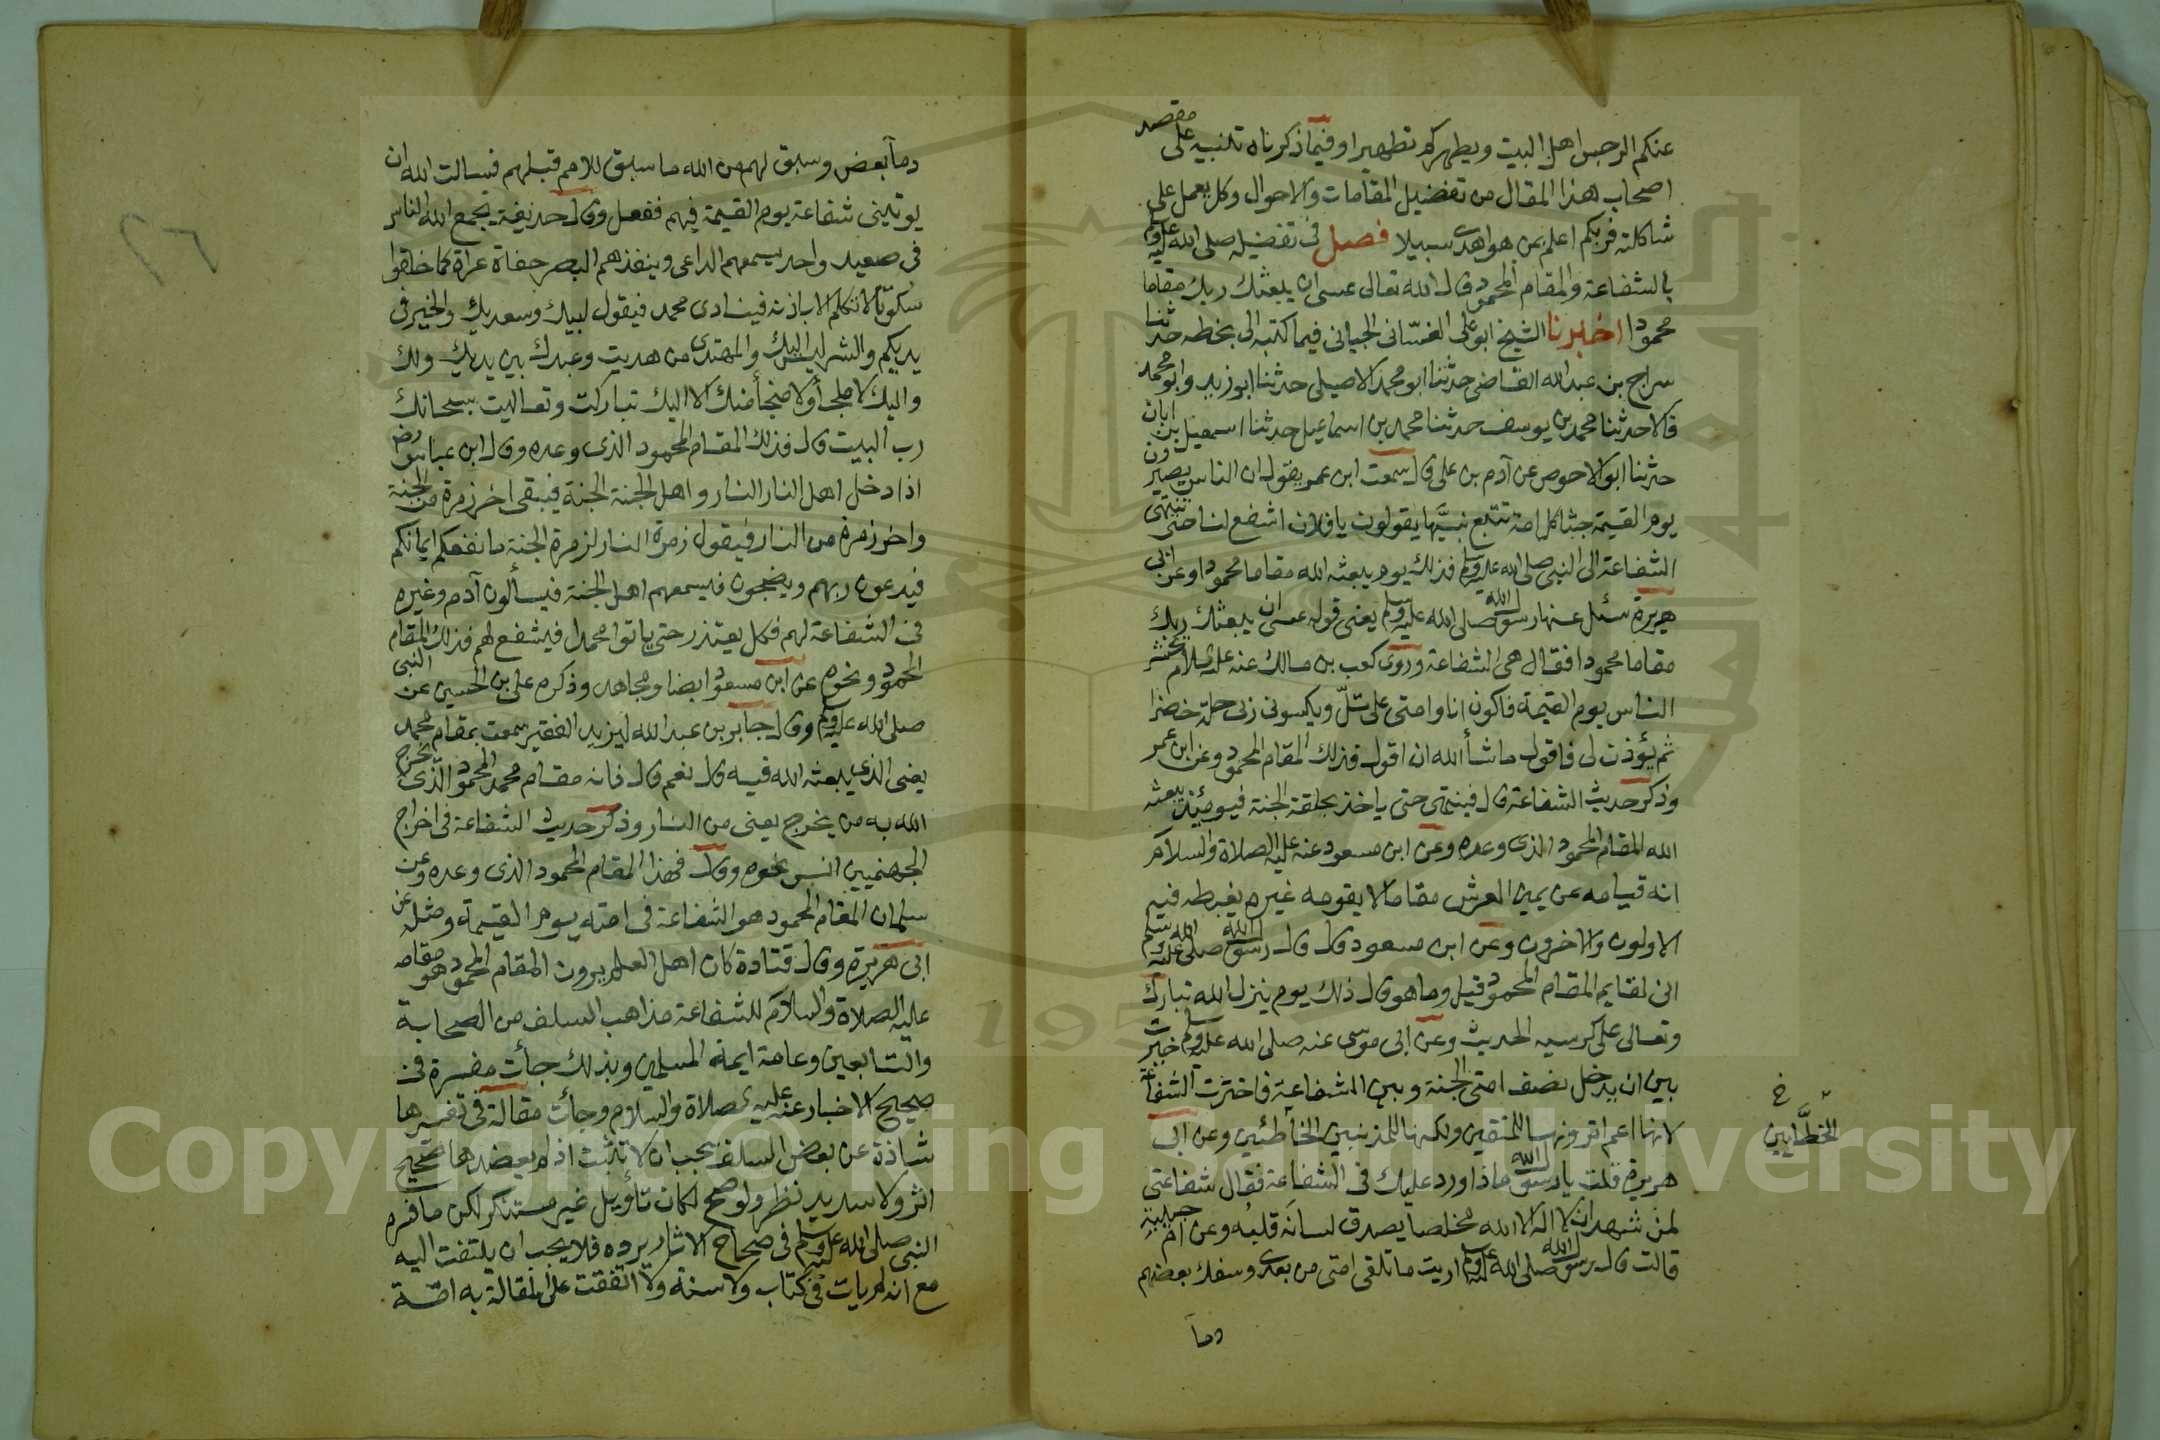 عنكم الرجس اهل البيت ويطهركم تطهيرا وفيما ذكرناه تلنبيه على مقصد
اصحاب هذا المقال من تفضيل المقامات والاحوال وكل يعمل على
شاكلته فربكم اعلم بمن هو اهدى سبيلا فصل فى تفضيله صلى الله عليه وسلم
بالشفاعة والمقام المحمود قال الله تعالى عسى ان يبعثك ربك مقاما
محمودا اخبرنا الشيخ ابو على الغسّانى الجيانى فيما كتبه الى بخطه حدثنا
سراج بن عبدالله القاضى حدثنا ابو محمد الاصيلى حدثنا ابو زيد وابو محمد
قالا حدثنا محمد بن يوسف حدثنا محمد بن اسماعيل حدثنا اسمعيل بن ابان
حدثنا ابو الاحوص عن آدم بن على قال سمعت ابن عمر يقول ان الناس يصيرون
يوم القيمة جثا كل امة تتبع نبيّها يقولون يا فلان اشفع لنا حتى تنتهى
الشفاعة الى النبى صلى الله عليه وسلم فذلك يوم يبعثه الله مقاما محمودا وعن ابى
هريرة سئل عنها رسول الله صلى الله عليه وسلم يعنى قوله عسى ان يبعثك ربك
مقاما محمودا فقال هى الشفاعة وروى كعب بن مالك عنه عليه السلام يحشر
الناس يوم القيمة فاكون انا وامتى على تلّ ويكسونى ربى حلة خضرا
ثم يؤذن لى فاقول ما شأ الله ان اقول فذلك المقام المحمود وعن ابن عمر
وذكر حديث الشفاعة قال فيمشى حتى ياخذ بحلقة الجنة فيومئذ يبعثه
الله المقام المحمود الذى وعده وعن ابن مسعود عنه عليه الصلاة والسلام
انه قيامه عن يمين العرش مقاما لا يقومه غيره يغبطه فيه
الاولون والاخرون وعن ابن مسعود قال قال رسول الله صلى الله عليه وسلم
انى لقايم المقام المحمود قيل وما هو قال ذلك يوم ينزل الله تبارك
وتعالى على كرسيه الحديث وعن ابى موسى عنه صلى الله عليه وسلم خيرت
بين ان يدخل نصف امتى الجنة وبين الشفاعة فاخترت الشفاعة
لانها اعم اترونها للمتقين ولكنها للمذنبين الخاطئين وعن ابى
خ
الخطَّايين
هريرة قلت يا رسول الله ماذا ورد عليك فى الشفاعة فقال شفاعتى
لمن شهد ان لا اله الا الله مخلصا يصدق لسانَه قلبُه وعن ام حبيبة
قالت قال رسول الله صلى الله عليه وسلم اريت ما تلقى امتى من بعدى وسفك بعضهم
دمآ
دمآ بعض وسبق لهم من الله ما سبق للامم قبلهم فسالت الله ان
يوتينى شفاعة يوم القيمة فيهم ففعل وقال حذيفة يجمع الله الناس
فى صعيد واحد يسمعهم الداعى وينفذهم البصر حفاة عراة كما خلقوا
سكوتًا لا تتكلم الا باذنه فينادى محمد فيقول لبيك وسعديك والخير فى
يديكم والشر ليس اليك والمهتدى من هديت وعبدك بين يديك ولك
واليك لا ملجأ ولا منجأ منك الا اليك تباركت وتعاليت سبحانك
رب البيت قال فذلك المقام المحمود الذى وعده وقال ابن عباس رض
اذا دخل اهل النار النار واهل الجنة الجنة فيبقى اخر زمرة من الجنة
واخر زمرة من النار فيقول زمرة النار لزمرة الجنة ما نفعكم ايمانكم
فيدعون ربهم ويضجون فيسمعهم اهل الجنة فيسألون آدم وغيره
فى الشفاعة لهم فكل يعتذر حتى ياتوا محمدا فيشفع لهم فذلك المقام
المحمود ونحوه عن ابن مسعود ايضا ومجاهد وذكره على بن الحسين عن النبى
صلى الله عليه وسلم وقال جابر بن عبدالله ليزيد الفقير سمعت بمقام محمد
يعنى الذى يبعثه الله فيه قال نعم قال فانه مقام محمد المحمود الّذى يخرج
الله به من يخرج يعنى من النار وذكر حديث الشفاعة فى اخراج
الجهنميين انس نحوه وقال فهذا المقام المحمود الذى وعده وعن
سلمان المقام المحمود هو الشفاعة فى امته يوم القيمة ومثله عن
ابى هريرة وقال قتادة كان اهل العلم يرون المقام المحمود هو مقامه
عليه الصلاة والسلام للشفاعة مذاهب السلف من الصحابة
والتابعين وعامة ايمة المسلمين وبذلك جأت مفسرة فى
صحيح الاخبار عنه عليه الصلاة والسلام وجأت مقالة فى تفسيرها
شاذة عن بعض السلف يجب ان لا تثبت اذ لم يعضدها صحيح
اثر ولا سديد نظر ولو صح لكان تأويل غير مستنكر لكن ما فسره
النبى صلى الله عليه وسلم فى صحاح الاثار يرده فلا يجب ان يلتفت اليه
مع انه لم يات فى كتاب ولا سنة ولا اتفقت على المقالة به امّة
Copyright © King Saud University